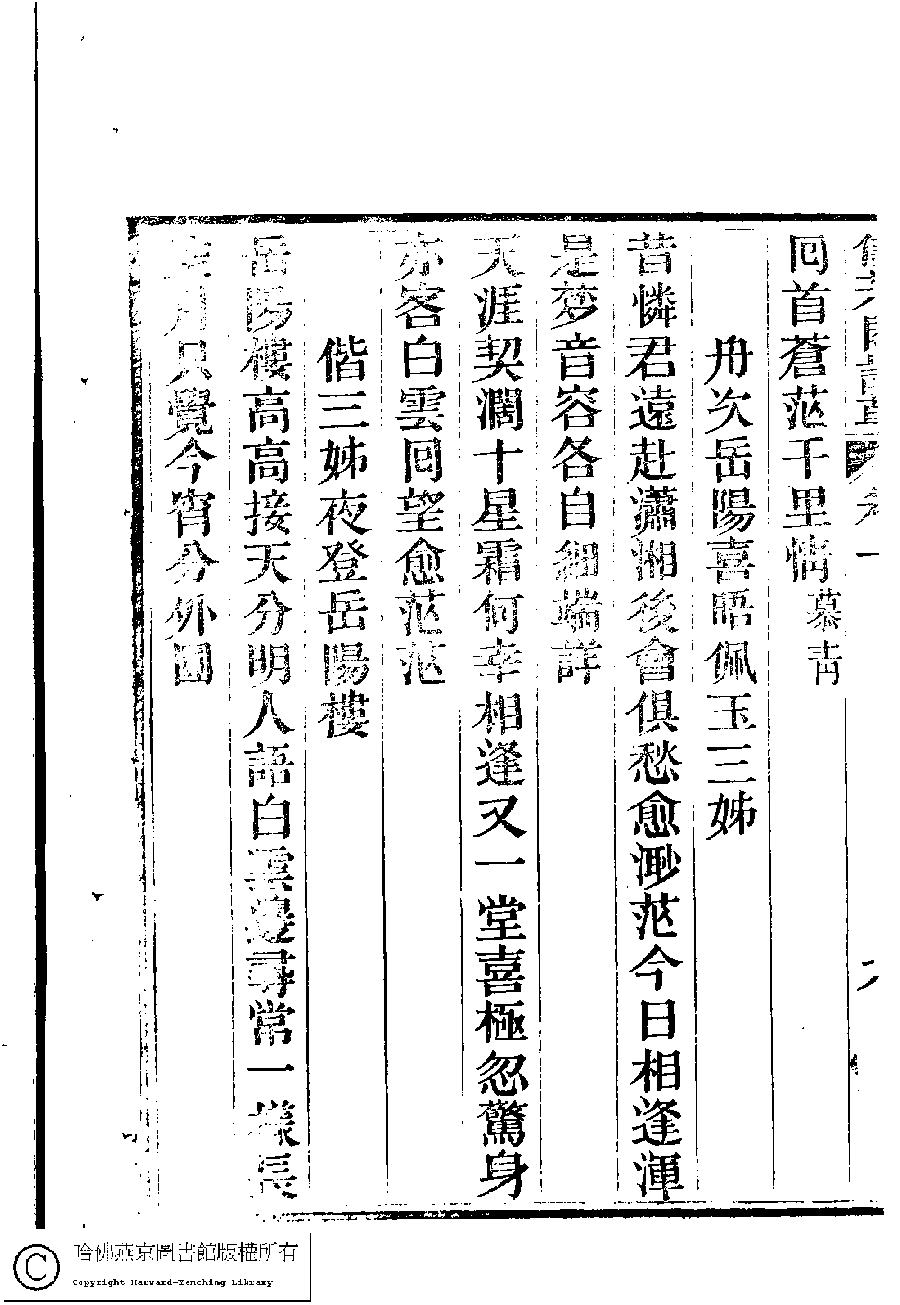 回首蒼茫千里情慕青
舟次岳陽喜晤佩玉三姊
昔憐君遠赴瀟湘後會俱愁愈渺茫今日相逢渾
是夢音容各自細端詳
天涯契濶十星霜何幸相逢又一堂喜極忽驚身
亦客白雲回望愈茫茫
偕三姊夜登岳陽樓
岳陽樓高高接天分明人語白雲邊尋常一樣長
月只覺今宵分外圓
哈佛燕京圖書館版權所有
Copyright Harvard-Yenching Library